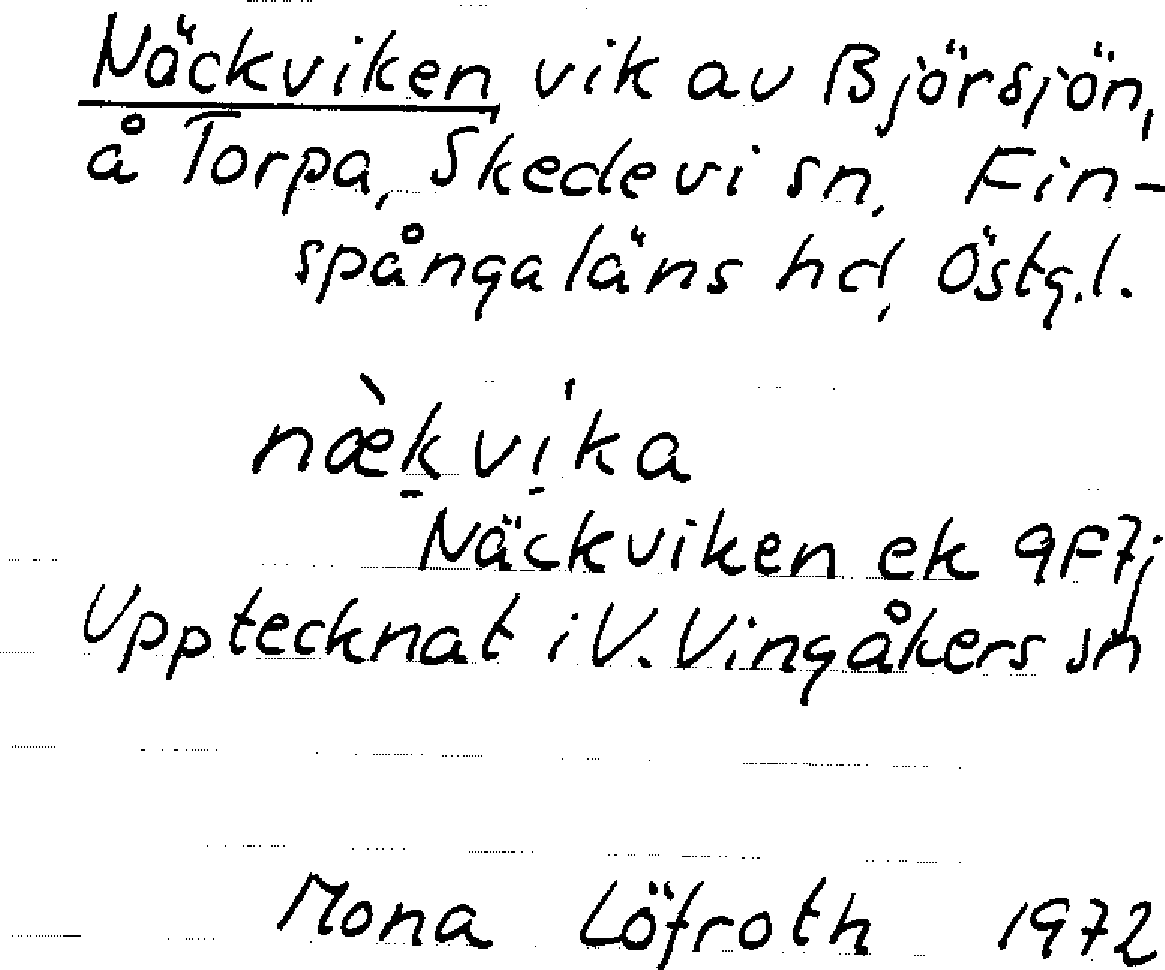 Näckviken vik av Björsjön,
å Torpa, Skedevi sn, Fin-
spångaläns hd, Östg.l.
næ̀kvi̍ka
Näckviken ek 9F7j
Upptecknat i V. Vingåkers sn
Mona Löfroth 1972